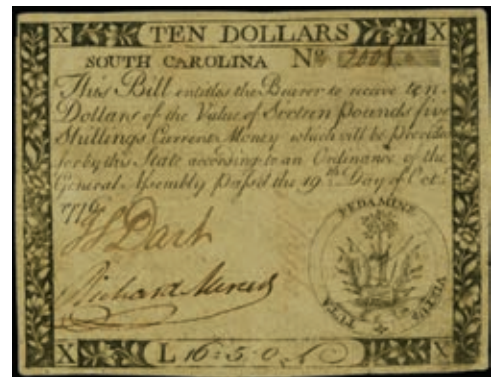 X TEN DOLLARS X
SOUTH CAROLINA Nº 2005
This Bill entitles the Bearer to receive ten
Dollars of the Value of Sixteen pounds five
Shillings Current Money which will be provided
for by this State according to an Ordinance of the
General Assembly Passed the 19th Day of Octr.
1776
Dart
Richard
FEDAMINE
VIRTUS
TUTA
X L 16:5:0 X